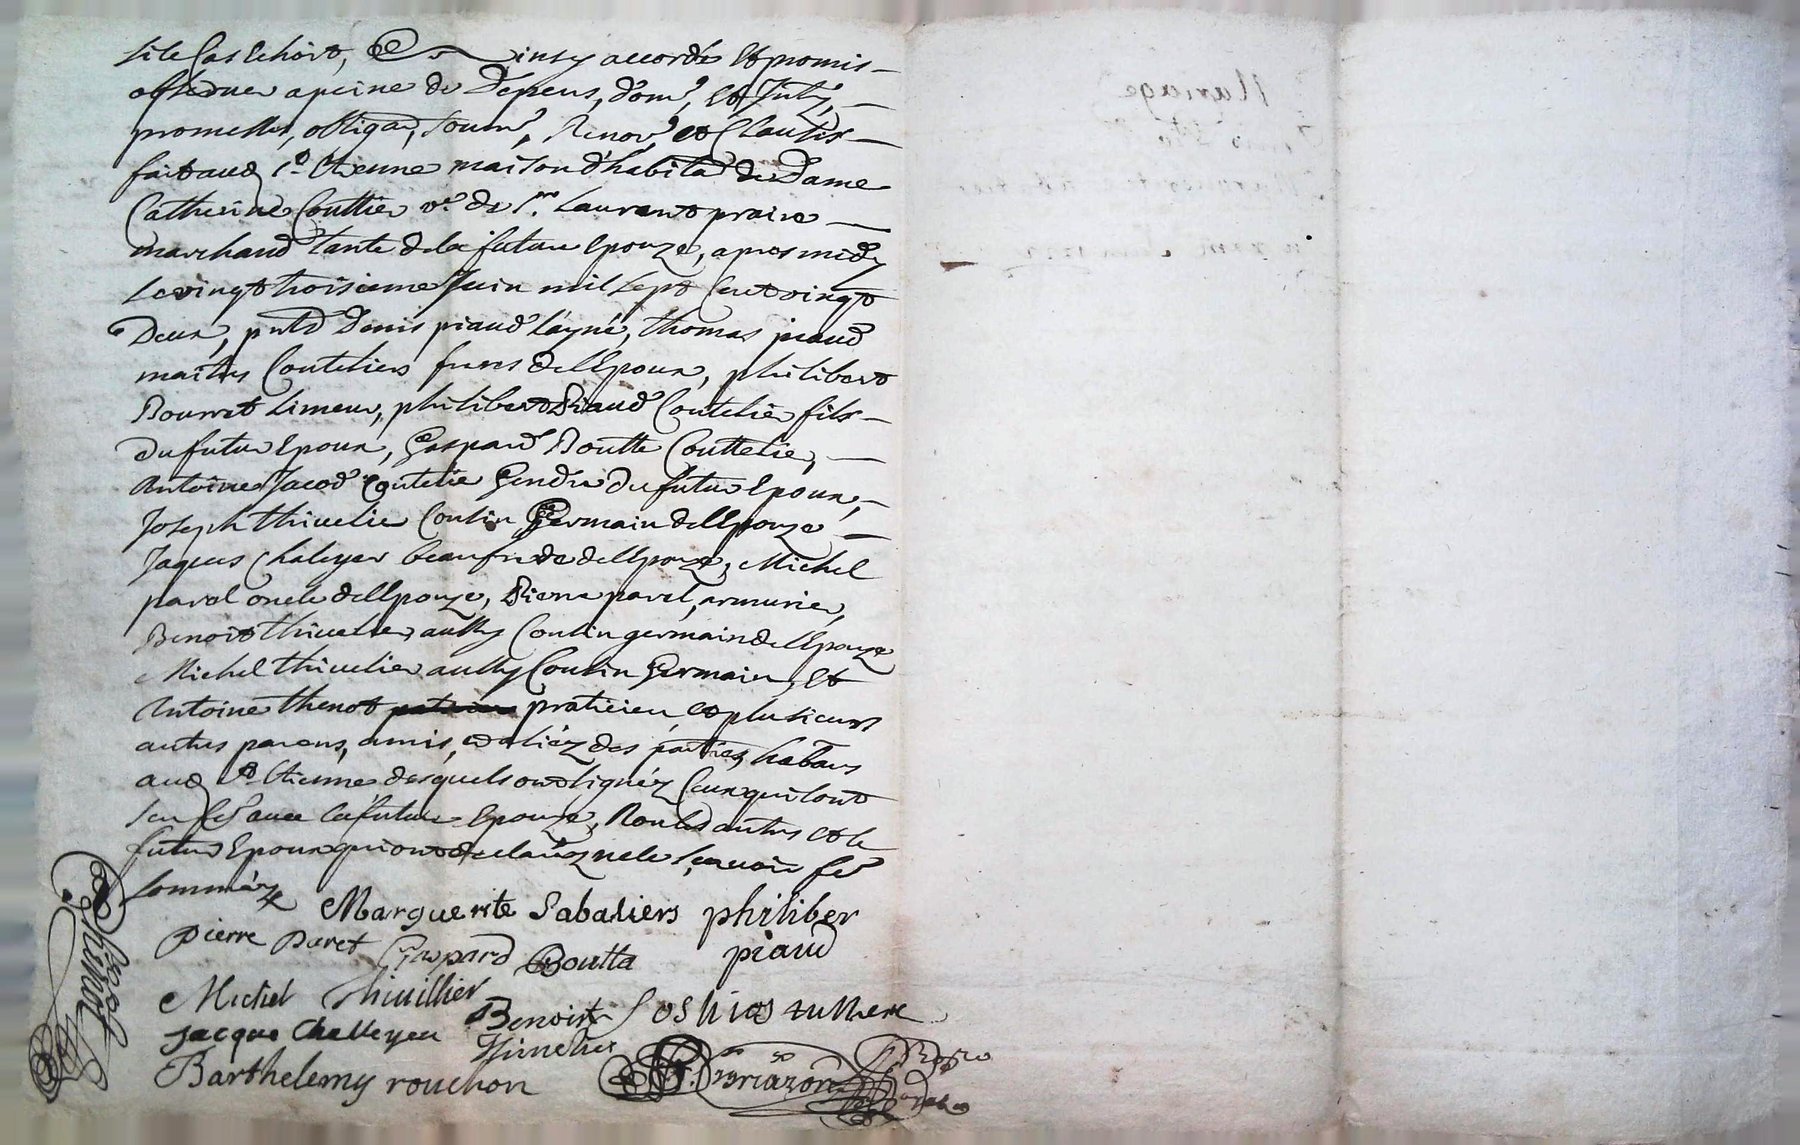 si le cas Echoit, & ainsy accordé Et promis
observer a peine de Depens, dom.s, Et Intz,
promettes, obligaõn, soum.s, Renon.s et Clauses
fait aud St Etienne maison d'habitaõn de Dame
Catherine Couttier ve de Sr. Laurent praire
marchand tante de la future Epouze, apres midy
Le vingt troisieme Juin mil sept Cent vingt
Deux, pntd Denis piaud l'ayné, thomas piaud
maitres Couteliers freres de l'Epoux, philibert
Bourret Limeur, philibert Piaud Coutelier fils
du futur Epoux, Gaspard Boutte Couttelier,
Antoine Jacod Coutelier Gendre du futur Epoux,
Joseph thiuelier Cousin Germain de l'Epouze
Jaques Chaleyer beaufrere de l'Epouze, Michel
paret oncle de l'Epouze, Pierre paret, armurier,
Benoit thiuelier aussy Cousin germain de l'Epouze
Michel thiuelier aussy Cousin Germain, Et
Antoine thenot praticien, et plusieurs
autres parens, amis, et aliéz des parties, habãns
aud St Etienne desquels ont signéz Ceux qui sont
sceu fe auec la future Epouze, Non les autres et le
futur Epoux qui ont declaréz ne le sçauoir fe
sommeéz
Marguerite Sabatiers philiber
piaud
pierre Paret Gaspard Boutta
Michel thiuillier
Benoist thiuelier
Jacque Challeyer
Barthelemy rouchon
thenot
Mariage